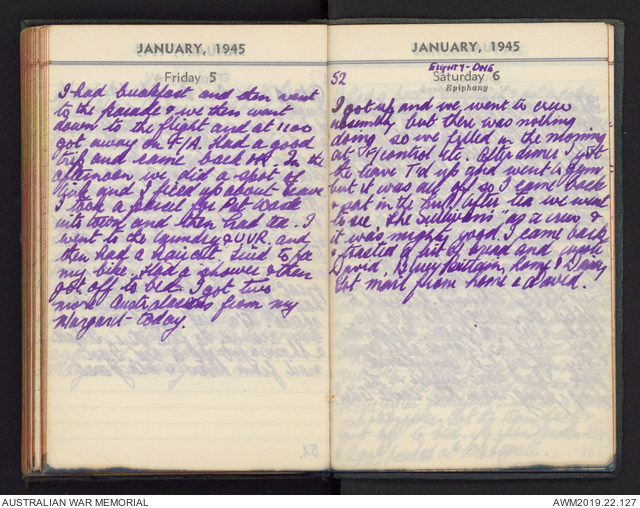 JANUARY, 1945
Friday 5
I had breakfast and then went
to the parade & we then went
down to the flight and at 1100
got away on F/A. Had a good
trip and came back OK. In the
afternoon we did a spot of
link and I fixed up about leave
I took a parcel for Pat Wade
into town and then had tea. I
went to the laundry & UVR. and
then had a haircut, tried to fix
my bike. Had a shower & then
got off to bed. I got two
more Australasians from my
Margaret today.
JANUARY, 1945
EIGHTY-ONE
52
Saturday 6
Epiphany
I got up and we went to crew
assembly but there was nothing
doing so we filled in the morning
at F/control etc. After dinner I got
the leave T'd up and went to gym
but it was all off so I came back
& sat in the After tea we went
to see "The Sullivans" as a crew &
it was mighty good. I came back
& toasted a bit of bread and wrote
David, Brittain, home &
Got mail from home & David.
AUSTRALIAN WAR MEMORIAL
AWM2019.22.127